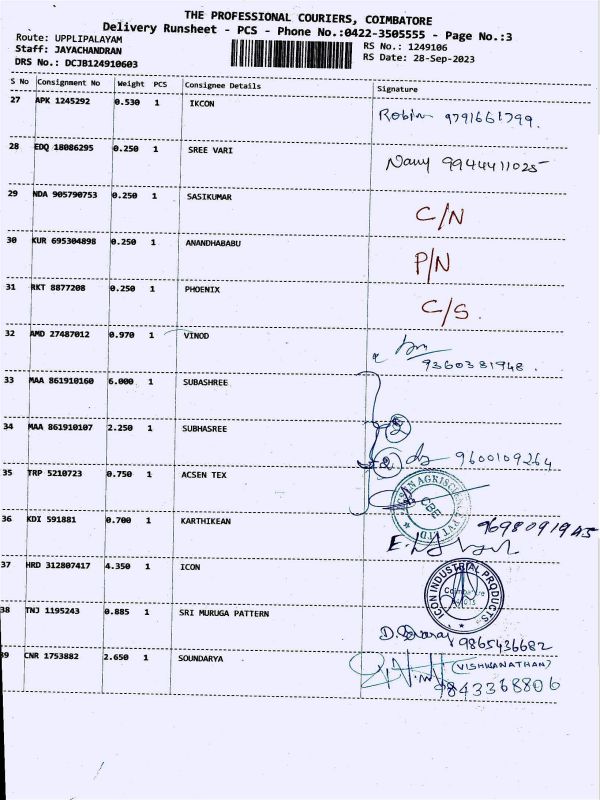 THE PROFESSIONAL COURIERS, COIMBATORE
Delivery Runsheet - PCS - Phone No.:0422-3505555 - Page No.:3
Route: UPPLIPALAYAM
RS No.: 1249106
Staff: JAYACHANDRAN
RS Date: 28-Sep-2023
DRS No.: DCJB124910603
S No Consignment No Weight PCS Consignee Details Signature
27 APK 1245292 0.530 1 IKCON Robin 9791661799.
28 EDQ 18086295 0.250 1 SREE VARI 9944411025
29 NDA 905790753 0.250 1 SASIKUMAR C/N
30 KUR 695304898 0.250 1 ANANDHABABU P/N
31 RKT 8877208 0.250 1 PHOENIX C/S.
32 AMD 27487012 0.970 1 VINOD 9360381948.
33 MAA 861910160 6.000 1 SUBASHREE
34 MAA 861910107 2.250 1 SUBHASREE 9600109264
35 TRP 5210723 0.750 1 ACSEN TEX
36 KDI 591881 0.700 1 KARTHIKEAN
37 HRD 312807417 4.350 1 ICON ICON INDUSTRIAL PRODUCTS
38 TNJ 1195243 0.885 1 SRI MURUGA PATTERN 9865436682
39 CNR 1753882 2.650 1 SOUNDARYA (VISHWANATHAN)
9843368806